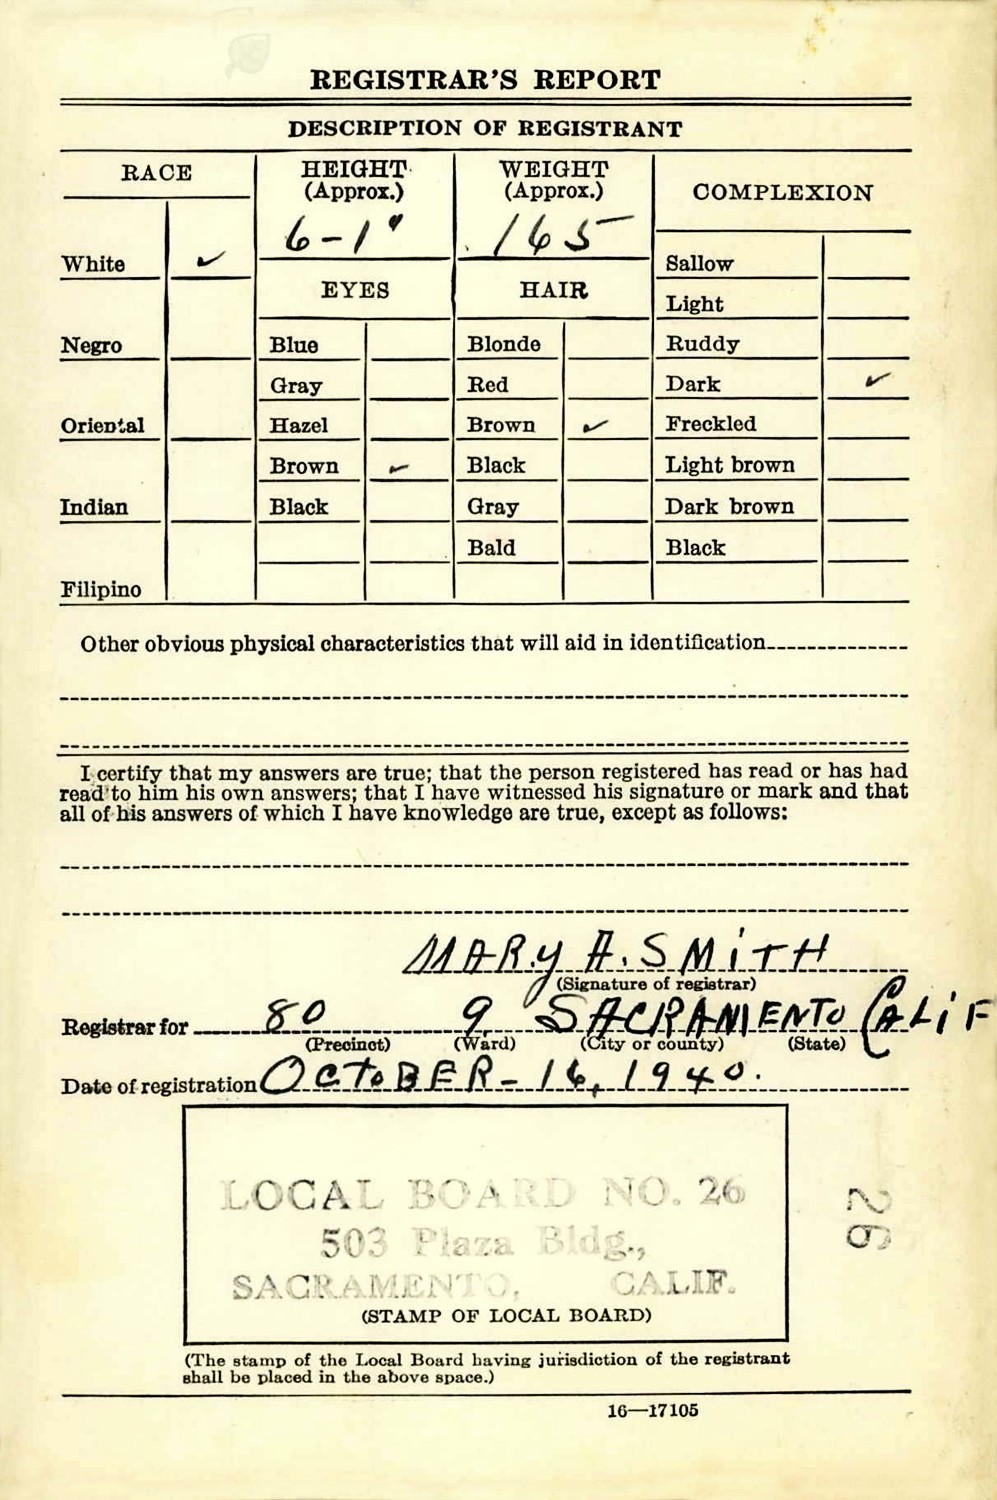 REGISTRAR'S REPORT
DESCRIPTION OF REGISTRANT
RACE
HEIGHT (Approx.)
WEIGHT (Approx.)
COMPLEXION
6-1"
165
White ✓
Sallow
EYES
HAIR
Light
Negro
Blue
Blonde
Ruddy
Gray
Red
Dark ✓
Oriental
Hazel
Brown ✓
Freckled
Brown ✓
Black
Light brown
Indian
Black
Gray
Dark brown
Bald
Black
Filipino
Other obvious physical characteristics that will aid in identification
I certify that my answers are true; that the person registered has read or has had
read to him his own answers; that I have witnessed his signature or mark and that
all of his answers of which I have knowledge are true, except as follows:
MARY A. SMITH
(Signature of registrar)
Registrar for 80 9 SACRAMENTO CALIF
(Precinct) (Ward) (City or county) (State)
Date of registration OCTOBER - 16, 1940.
LOCAL BOARD NO. 26
503 Plaza Bldg.,
SACRAMENTO, CALIF.
26
(STAMP OF LOCAL BOARD)
(The stamp of the Local Board having jurisdiction of the registrant
shall be placed in the above space.)
16—17105